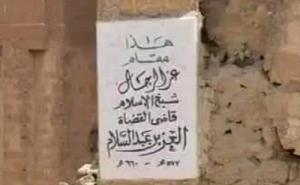 هذا
مقام
عز الرجال
شيخ الإسلام
قاضى القضاة
العز بن عبد السلام
٥٧٧ هـ - ٦٦٠ هـ